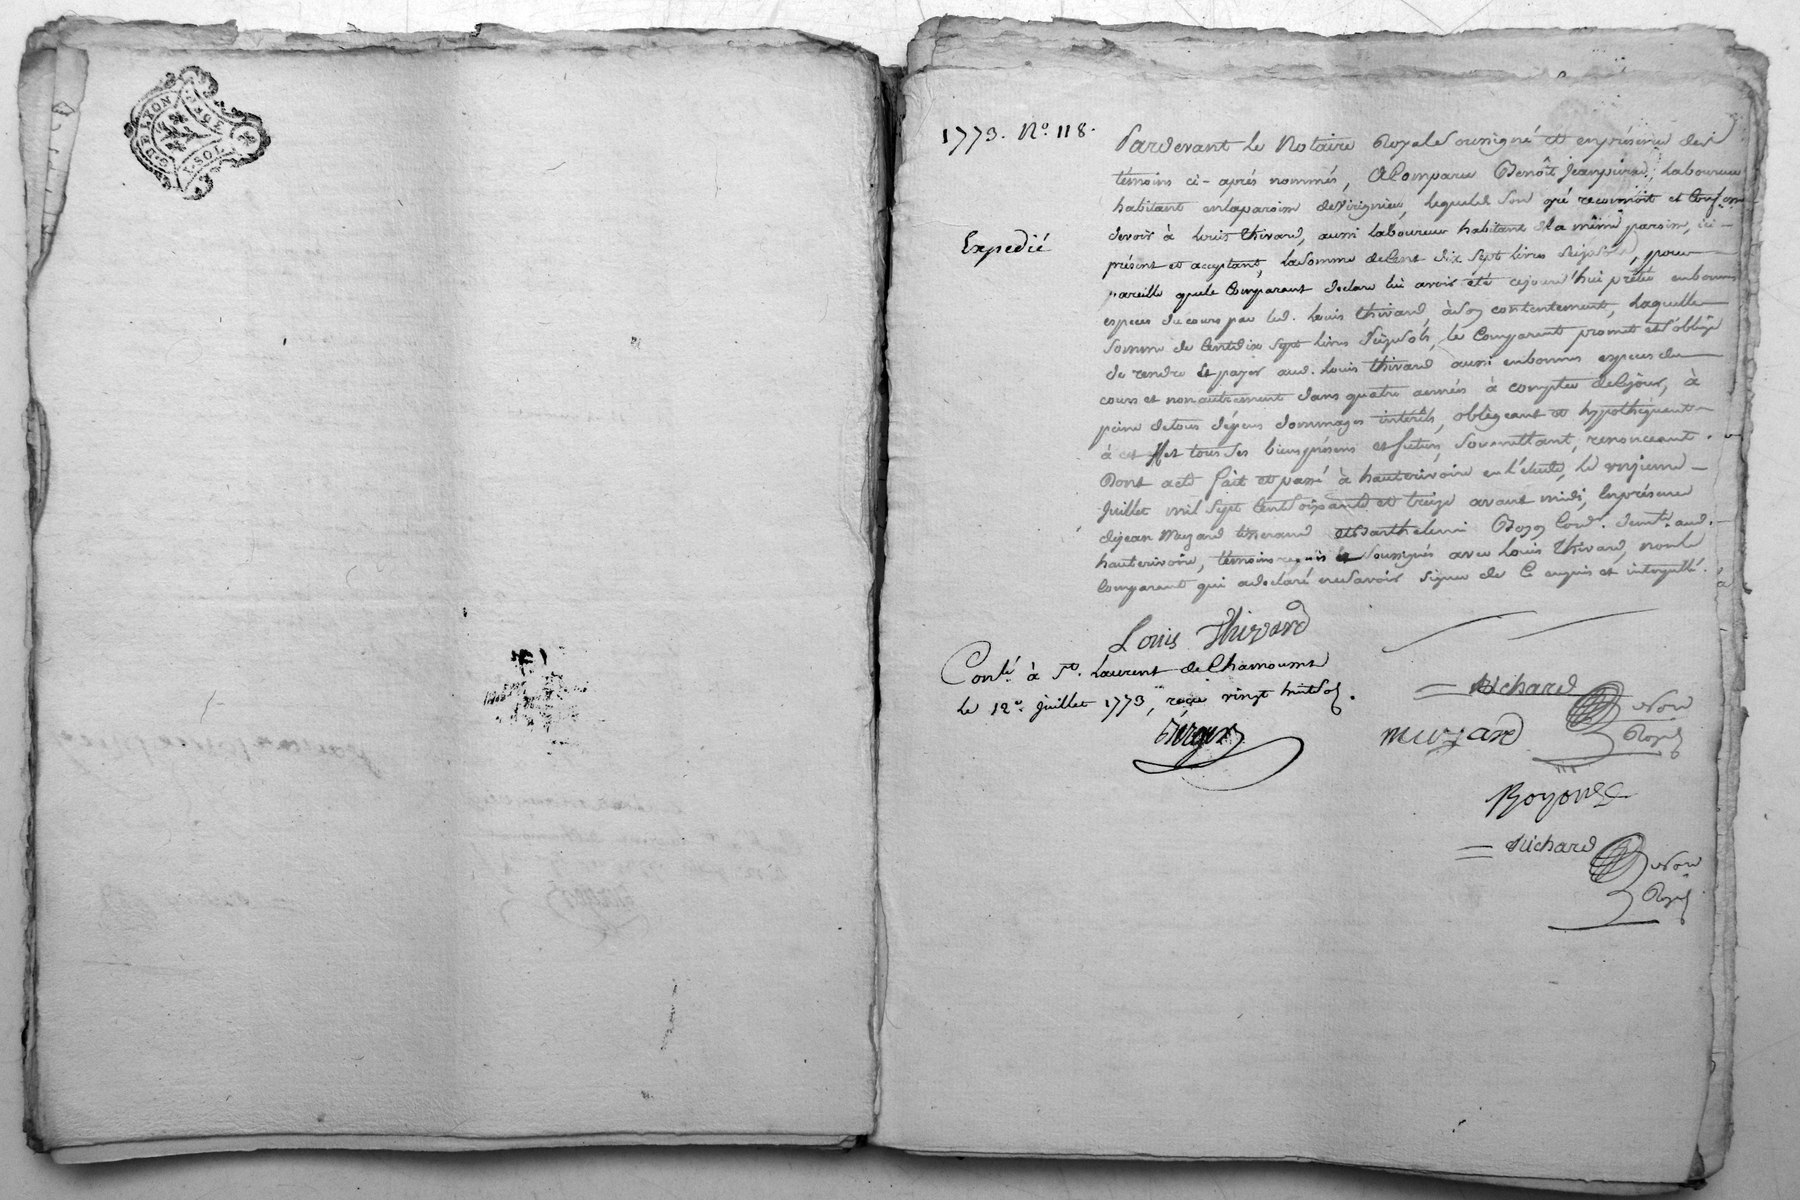 G. DE LYON
1. SOL
1773. N.o 118.
Expedié
Pardevant le Notaire Royal Soussigné et en présence des
témoins ci-aprés nommés, a Comparu Benoît Jeanpierre, Laboureur
habitant en la paroisse de Virignieu, lequel de son gré reconnoit et Confesse
devoir à Louis Thivard, aussi Laboureur habitant d la même paroisse, ici
présent et acceptant, la Somme de Cent dix Sept livres Seize Sols, pour
pareille que le Comparant declare lui avoir été cejourd'hui prêtée en bonnes
especes du cours par led. Louis Thivard, à Son contentement, Laquelle
Somme de Cent dix Sept livres Seize Sols, le Comparant promet et S'oblige
de rendre et payer aud. Louis Thivard aussi en bonnes especes du
cours et non autrement dans quatre années à compter de Ce jour, à
peine de tous dépens dommages intérêts, obligeant et hypothéquant
à cet effet tous Ses biens présens et futurs, Soumettant, renonceant.
Dont acte fait et passé à hauterivoire en l'étude, le onzieme
Juillet mil Sept Cent Soixante et treize avant midi, en présence
de jean Muzard tisserand et Barthelemi Boyon Cord.r demt. aud.
hauterivoire, témoins requis et Soussignés avec Louis Thivard, non le
Comparant qui a declaré ne Savoir Signer de Ce enquis et interpellé.
Louis Thivard
Conlé à St. Laurent de Chamousset
Le 12e. Juillet 1773, reçu vingt huit Sols.
Richard
Nore
Royal
muzard
Boyon
Richard
Nore
Royal